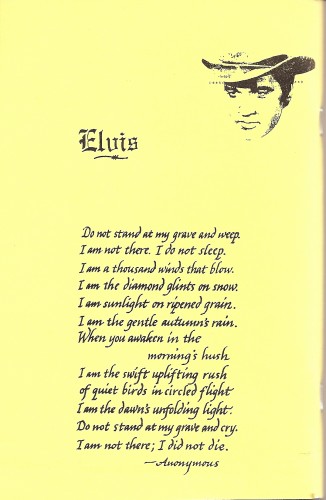 Elvis
Do not stand at my grave and weep.
I am not there. I do not sleep.
I am a thousand winds that blow.
I am the diamond glints on snow.
I am sunlight on ripened grain.
I am the gentle autumn's rain.
When you awaken in the
morning's hush
I am the swift uplifting rush
of quiet birds in circled flight
I am the dawn's unfolding light.
Do not stand at my grave and cry.
I am not there; I did not die.
—Anonymous